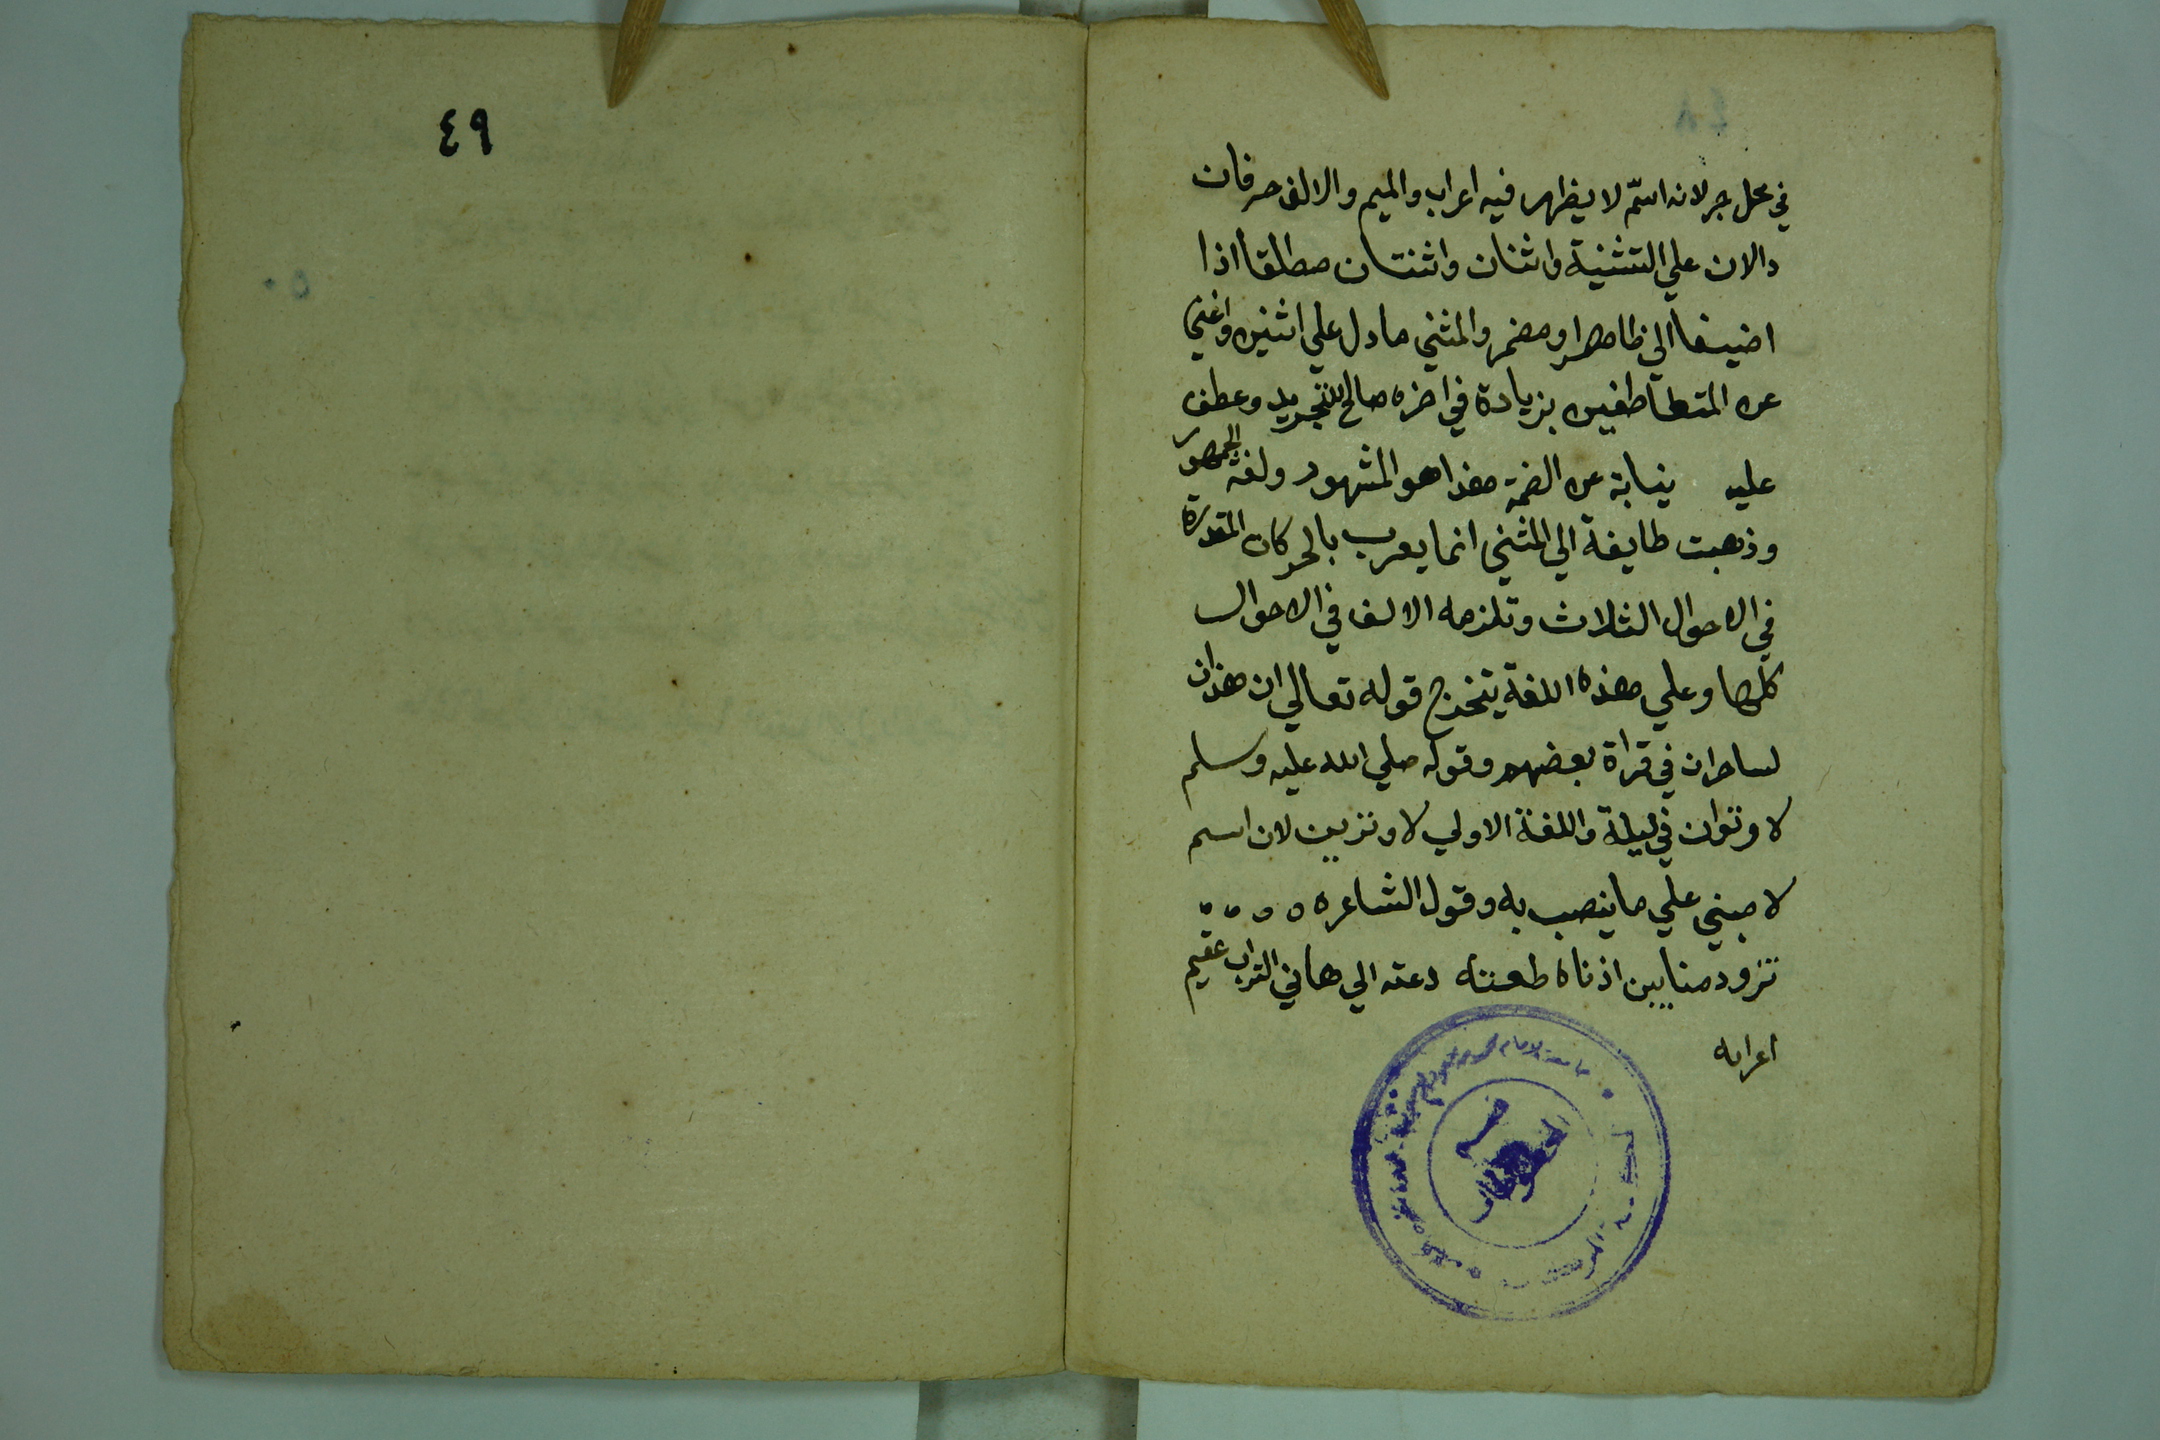 في محل جر لانه اسم لا يظهر فيه اعراب والميم والالف حرفان
دالان علي التثنية واثنان واثنتان مطلقا اذا
اضيفا الي ظاهر او مضمر والمثني ما دل علي اثنين واغني
عن المتعاطفين بزيادة في اخره صالح للتجريد وعطف
عليه نيابة عن الضمة هذا هو المشهور ولغة الجمهور
وذهبت طايفة الي المثني انما يعرب بالحركات المقدرة
في الاحوال الثلاث وتلزمه الالف في الاحوال
كلها وعلي هذه اللغة يتخرج قوله تعالي ان هذان
لساحران في قراة بعضهم وقوله صلي الله عليه وسلم
لا وتران في ليلة واللغة الاولي لا وترين لان اسم
لا مبني علي ما ينصب به وقول الشاعر ه ه
تزود منا بين اذناه طعنة دعته الي هابي التراب عقيم
اعرابه
جامعة الامام محمد
٤٩